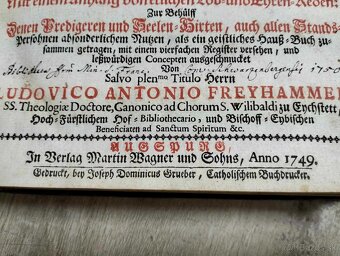 Mit einem Anhang
Lob- und Ehren-Reden:
Zur Behülff
Denen Predigeren und Seelen-Hirten, auch allen Stands-
Persohnen absonderlichen Nutzen, als ein geistliches Hauß-Buch zu-
sammen getragen, mit einem vierfachen Register versehen, und
leßwürdigen Concepten ausgeschmucket
Von
Salvo plen.mo Titulo Herrn
LUDOVICO ANTONIO FREYHAMMER
SS. Theologiæ Doctore, Canonico ad Chorum S. Wilibaldi zu Eychstett,
Hoch-Fürstlichem Hof-Bibliothecario, und Bischoff-Eybischen
Beneficiaten ad Sanctum Spiritum &c.
AUGSPURG,
In Verlag Martin Wagner und Sohns, Anno 1749.
Gedruckt, bey Joseph Dominicus Gruber, Catholischem Buchdrucker.